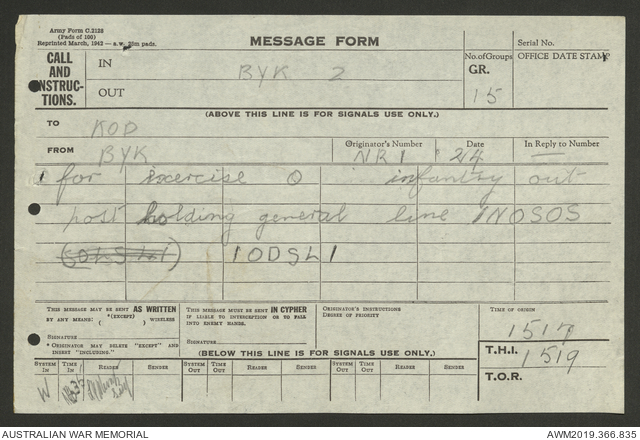 Army Form C.2128
(Pads of 100)
Reprinted March, 1942 — a.w. 25m pads.
MESSAGE FORM
Serial No.
CALL AND INSTRUC-TIONS.
IN BYK 2
OUT
No. of Groups
GR.
15
OFFICE DATE STAMP
(ABOVE THIS LINE IS FOR SIGNALS USE ONLY.)
TO KOD
FROM BYK
Originator's Number NR 1
Date 24
In Reply to Number —
1 for exercise O infantry out
post holding general line INOSOS
1ODSL1
THIS MESSAGE MAY BE SENT AS WRITTEN
BY ANY MEANS: *(EXCEPT) ( ) WIRELESS
SIGNATURE
* ORIGINATOR MAY DELETE "EXCEPT" AND INSERT "INCLUDING."
THIS MESSAGE MUST BE SENT IN CYPHER
IF LIABLE TO INTERCEPTION OR TO FALL INTO ENEMY HANDS.
SIGNATURE
ORIGINATOR'S INSTRUCTIONS
DEGREE OF PRIORITY
TIME OF ORIGIN
1517
T.H.I. 1519
T.O.R.
(BELOW THIS LINE IS FOR SIGNALS USE ONLY.)
SYSTEM IN TIME IN READER SENDER SYSTEM OUT TIME OUT READER SENDER SYSTEM OUT TIME OUT READER SENDER
W
AUSTRALIAN WAR MEMORIAL
AWM2019.366.835